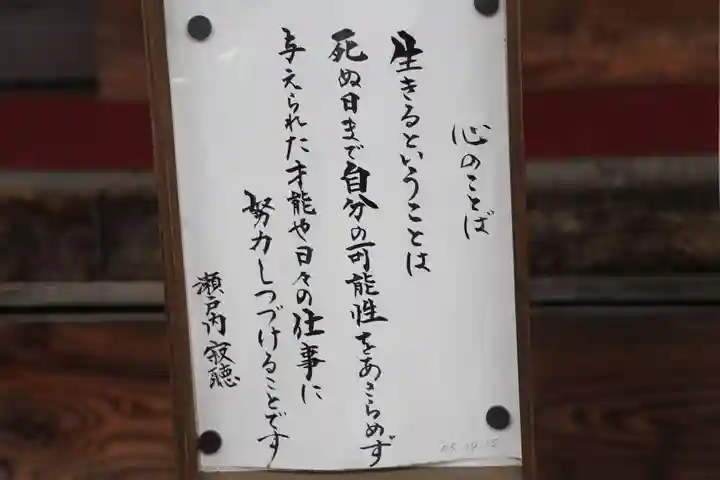 心のことば
生きるということは
死ぬ日まで自分の可能性をあきらめず
与えられた才能や日々の仕事に
努力しつづけることです
瀬戸内寂聴